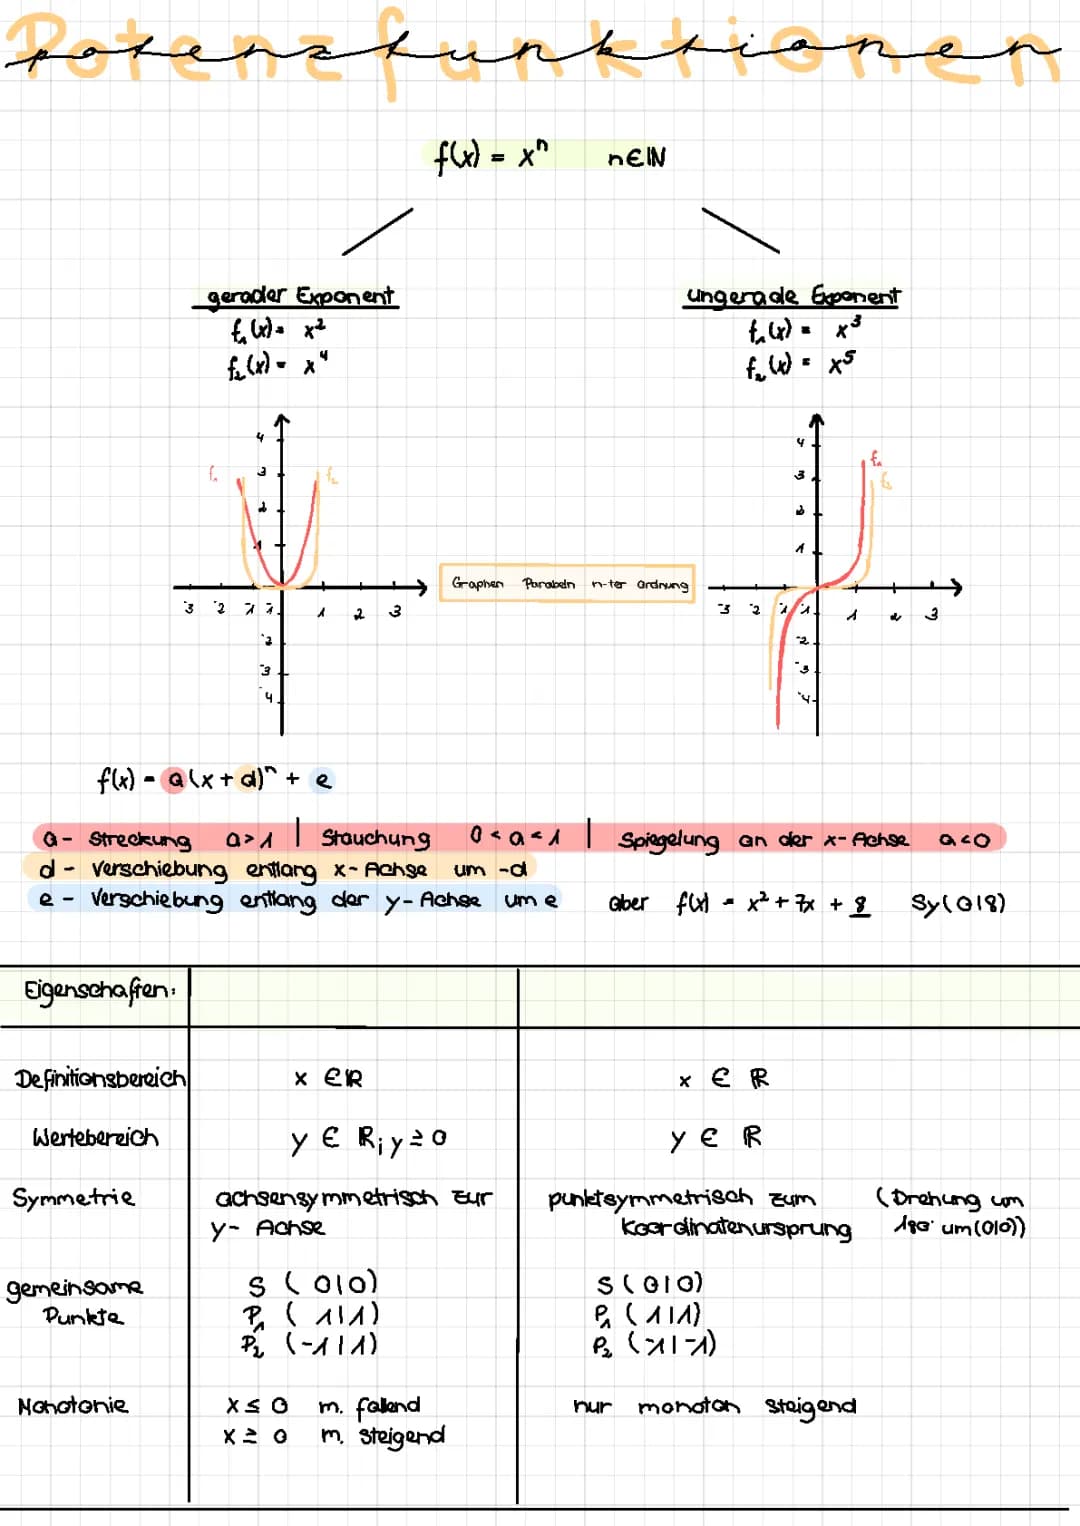 Potenzfunktionen
potenzfunktionen
f(x) = xⁿ n∈ℕ
gerader Exponent
f₁(x) = x²
f₂(x) = x⁴
ungerade Exponent
f₁(x) = x³
f₂(x) = x⁵
4
3
2
1
f₁
f₂
-3 -2 -1 -1 1 2 3
-2
-3
-4
Graphen Parabeln n-ter Ordnung
4
3
2
1
f₁
f₂
-3 -2 -1 -1 1 2 3
-2
-3
-4
f(x) = a(x+d)ⁿ + e
a - Streckung a>1 | Stauchung 0<a<1 | Spiegelung an der x-Achse a<0
d - Verschiebung entlang x-Achse um -d
e - Verschiebung entlang der y-Achse um e aber f(x) = x² + 7x + 8 Sy(0|8)
Eigenschaften:
Definitionsbereich x ∈ℝ x ∈ ℝ
Wertebereich y ∈ ℝ; y≥0 y ∈ ℝ
Symmetrie achsensymmetrisch zur punktsymmetrisch zum (Drehung um
y-Achse Koordinatenursprung 180° um (0|0))
gemeinsame S (0|0) S (0|0)
Punkte P₁ (1|1) P₁ (1|1)
P₂ (-1|1) P₂ (-1|-1)
Monotonie x≤0 m. fallend nur monoton steigend
x≥0 m. steigend